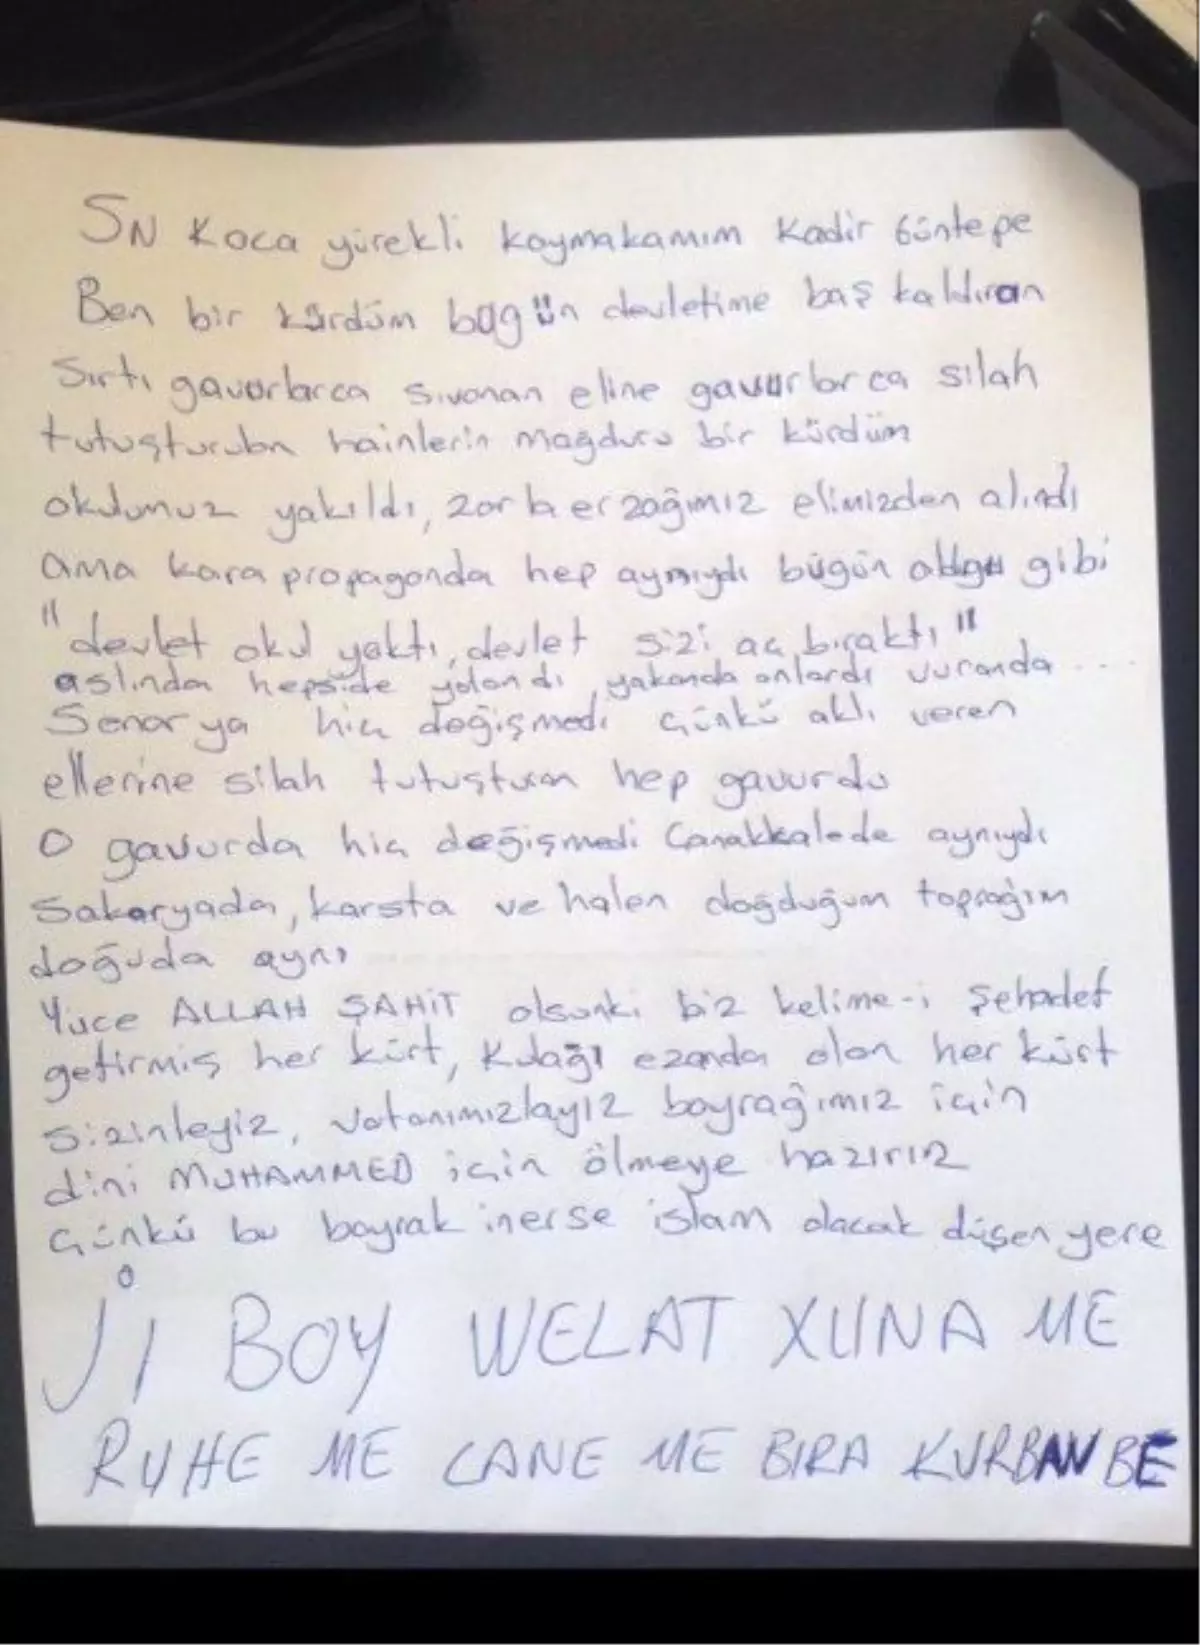 SN Koca yürekli kaymakamım Kadir Güntepe
Ben bir kürdüm bugün devletime baş kaldıran
Sırtı gavurlarca sıvanan eline gavurlarca silah
tutuşturulan hainlerin mağduru bir kürdüm
okulumuz yakıldı, zorla erzağımız elimizden alındı
ama kara propaganda hep aynıydı bügün olduğu gibi
"devlet okul yaktı, devlet sizi aç bıraktı"
aslında hepside yalandı, yakanda onlardı vuranda ....
Senarya hiç değişmedi çünkü aklı veren
ellerine silah tutuşturan hep gavurdu
O gavurda hiç değişmedi Çanakkalede aynıydı
Sakaryada, karsta ve halen doğduğum toprağım
doğuda aynı
Yüce ALLAH ŞAHİT olsunki biz kelime-i şehadet
getirmiş her kürt, Kulağı ezanda olan her kürt
sizinleyiz, vatanımızlayız bayrağımız için
dini MUHAMMED için ölmeye hazırız
Çünkü bu bayrak inerse islam olacak düşen yere
Ji BOY WELAT XUNA ME
RUHE ME CANE ME BIRA KURBAN BE